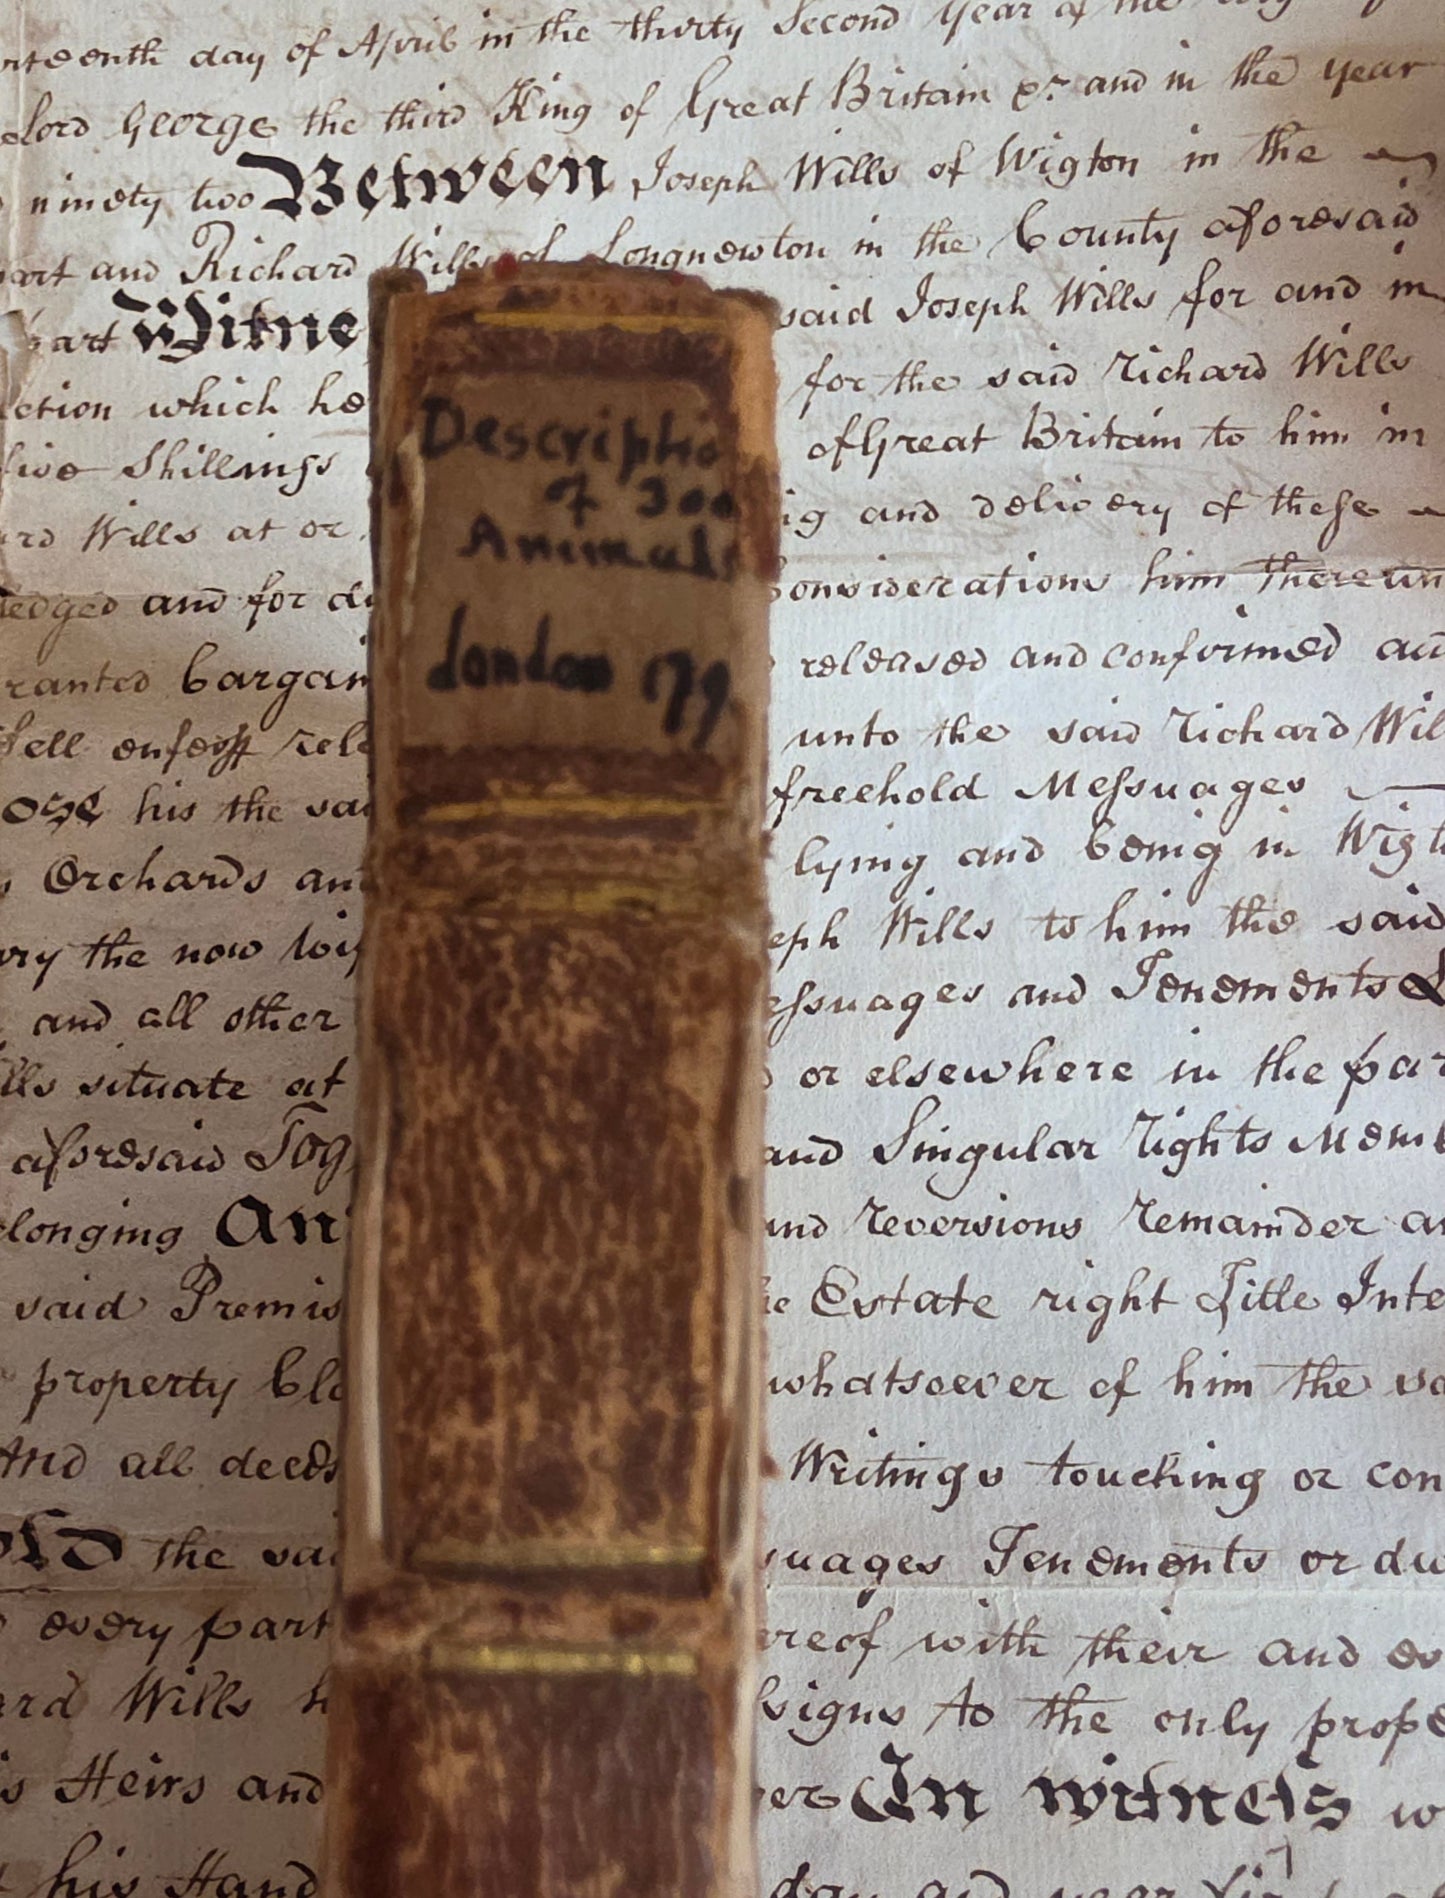 day of April in the thirty Second year of the
Lord George the third King of Great Britain &c. and in the year
ninety two Between Joseph Wills of Wigton in the
part and Richard Wills of Longnewton in the County aforesaid
part Witne said Joseph Wills for and in
which he for the said Richard Wills
five Shillings of Great Britain to him in
Wills at or and delivery of these
and for Considerations him thereun
ranted bargain released and confirmed and
Sell enfeoff rele unto the said Richard Wil
ose his the sai freehold Messuages
Orchards an lying and being in Wigt
the now eph Wills to him the said
and all other essuages and Tenements
lls situate at or elsewhere in the par
aforesaid Tog and Singular rights Mem
elonging An and reversions remainder a
said Premis Estate right Title Inte
property Cla whatsoever of him the sa
And all deeds Writings touching or con
old the sai suages Tenements or dw
every part ereof with their and ev
ard Wills h signs to the only prope
is Heirs and er In witness w
his Hand day and year
Descriptio
of 300
Animals
London 179